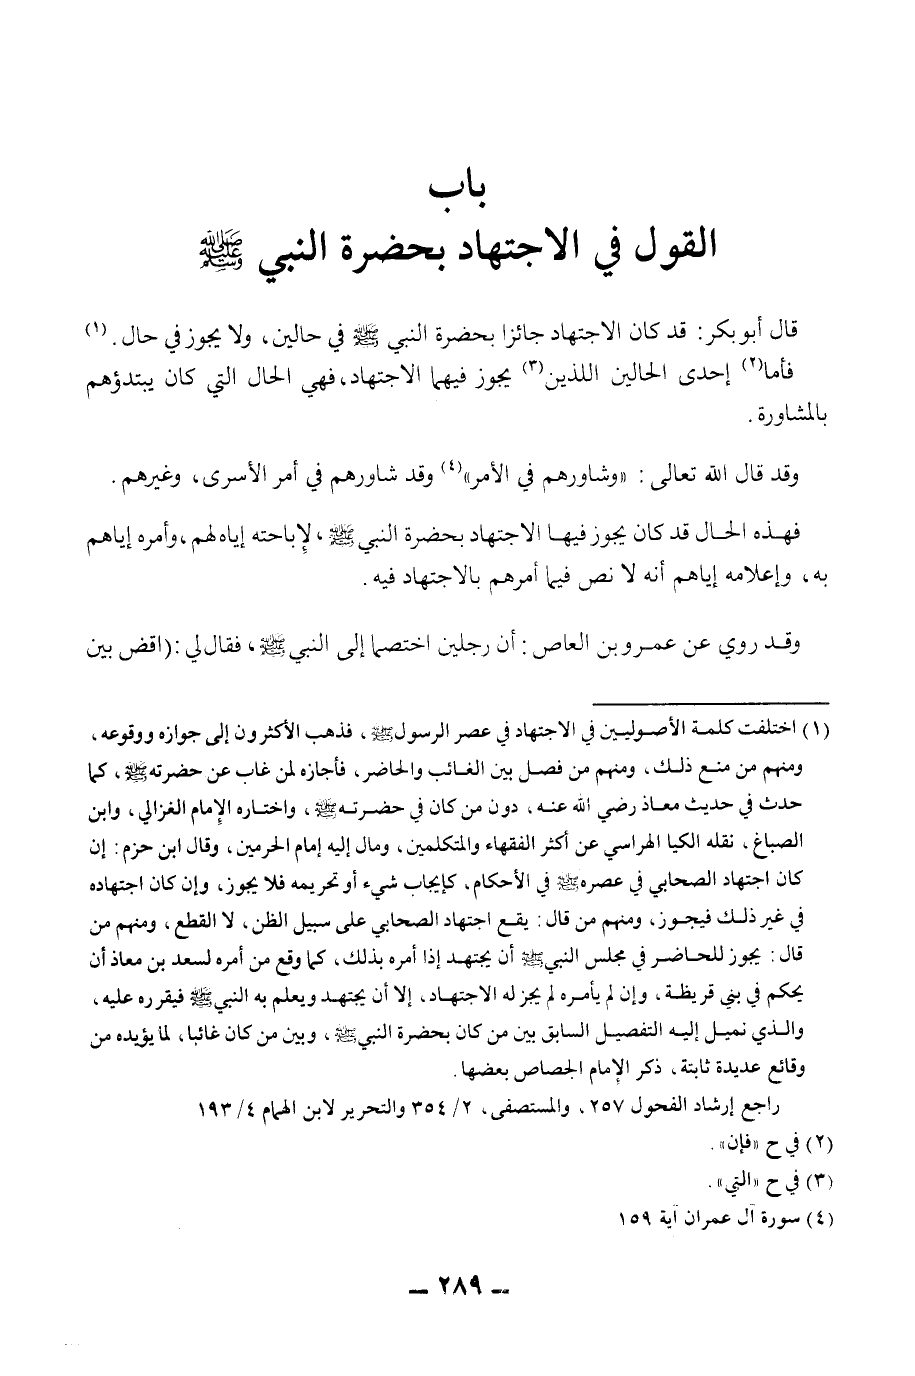 باب
القول في الاجتهاد بحضرة النبي ﷺ
قال أبو بكر: قد كان الاجتهاد جائزا بحضرة النبي ﷺ في حالين، ولا يجوز في حال. (١)
فأما(٢) إحدى الحالين اللذين(٣) يجوز فيهما الاجتهاد، فهي الحال التي كان يبتدؤهم
بالمشاورة.
وقد قال الله تعالى: «وشاورهم في الأمر»(٤) وقد شاورهم في أمر الأسرى، وغيرهم.
فهذه الحال قد كان يجوز فيها الاجتهاد بحضرة النبي ﷺ، لإباحته إياه لهم، وأمره إياهم
به، وإعلامه إياهم أنه لا نص فيما أمرهم بالاجتهاد فيه.
وقد روي عن عمرو بن العاص: أن رجلين اختصما إلى النبي ﷺ، فقال لي: (اقض بين
(١) اختلفت كلمة الأصوليين في الاجتهاد في عصر الرسول ﷺ، فذهب الأكثرون إلى جوازه ووقوعه،
ومنهم من منع ذلك، ومنهم من فصل بين الغائب والحاضر، فأجازه لمن غاب عن حضرته ﷺ، كما
حدث في حديث معاذ رضي الله عنه، دون من كان في حضرته ﷺ، واختاره الإمام الغزالي، وابن
الصباغ، نقله الكيا الهراسي عن أكثر الفقهاء والمتكلمين، ومال إليه إمام الحرمين، وقال ابن حزم: إن
كان اجتهاد الصحابي في عصره ﷺ في الأحكام، كإيجاب شيء أو تحريمه فلا يجوز، وإن كان اجتهاده
في غير ذلك فيجوز، ومنهم من قال: يقع اجتهاد الصحابي على سبيل الظن، لا القطع، ومنهم من
قال: يجوز للحاضر في مجلس النبي ﷺ أن يجتهد إذا أمره بذلك، كما وقع من أمره لسعد بن معاذ أن
يحكم في بني قريظة، وإن لم يأمره لم يجز له الاجتهاد، إلا أن يجتهد ويعلم به النبي ﷺ فيقرره عليه،
والذي نميل إليه التفصيل السابق بين من كان بحضرة النبي ﷺ، وبين من كان غائبا، لما يؤيده من
وقائع عديدة ثابتة، ذكر الإمام الجصاص بعضها.
راجع إرشاد الفحول ٢٥٧، والمستصفى، ٢/ ٣٥٤ والتحرير لابن الهمام ٤/ ١٩٣
(٢) في ح «فإن».
(٣) في ح «التي».
(٤) سورة آل عمران آية ١٥٩
– ٢٨٩ –